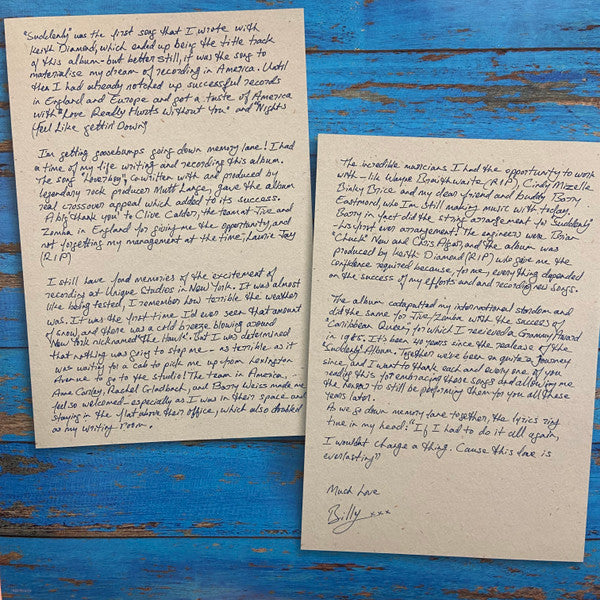 "Suddenly" was the first song that I wrote with
Keith Diamond, which ended up being the title track
of this album - but better still, it was the song to
materialise my dream of recording in America. Until
then I had already notched up successful records
in England and Europe and got a taste of America
with "Love Really Hurts Without You" and "Nights
(feel like gettin Down)"
I'm getting goosebumps going down memory lane! I had
a time of my life writing and recording this album.
The song "Loverboy", co written with and produced by
legendary rock producer Mutt Lange, gave the album
real crossover appeal which added to its success.
A big thank you to Clive Calder, the team at Jive and
Zomba in England for giving me the opportunity, and
not forgetting my management at the time, Laurie Jay
(R.I.P)
I still have fond memories of the excitement of
recording at Unique Studios in New York. It was almost
like being tested, I remember how terrible the weather
was. It was the first time I'd ever seen that amount
of snow, and there was a cold breeze blowing around
New York nicknamed "The Hawk". But I was determined
that nothing was going to stop me - as terrible as it
was waiting for a cab to pick me up from Lexington
Avenue to go to the studio! The team in America, -
Ann Carley, Rachel , and Barry Weiss made me
feel so welcomed - especially as I was in their space and
staying in the flat above their office, which also doubled
as my writing room.
The incredible musicians I had the opportunity to work
with - like Wayne Braithwaite (R.I.P), Cindy Mizelle
Binky Brice and my dear friend and buddy Barry
Eastmond, who I'm still making music with today.
Barry in fact did the string arrangement to "Suddenly"
- his first ever arrangement! The engineers were Brian
"Chuck" New and Chris Agar, and the album was
produced by Keith Diamond (R.I.P) who gave me the
confidence required because, for me, everything depended
on the success of my efforts and recording new songs.
The album catapulted my international stardom and
did the same for Jive/Zomba with the success of
"Caribbean Queen" for which I recieved a Grammy Award
in 1985. It's been 40 years since the realease of the
Suddenly Album. Together we've been on quite a journey
since, and I want to thank each and every one of you
reading this for embracing these songs and allowing me
the honour to still be performing them for you all these
years later.
As we go down memory lane together, the lyrics ring
true in my head: "If I had to do it all again,
I wouldn't change a thing. Cause this love is
everlasting"
Much Love
Billy xxx